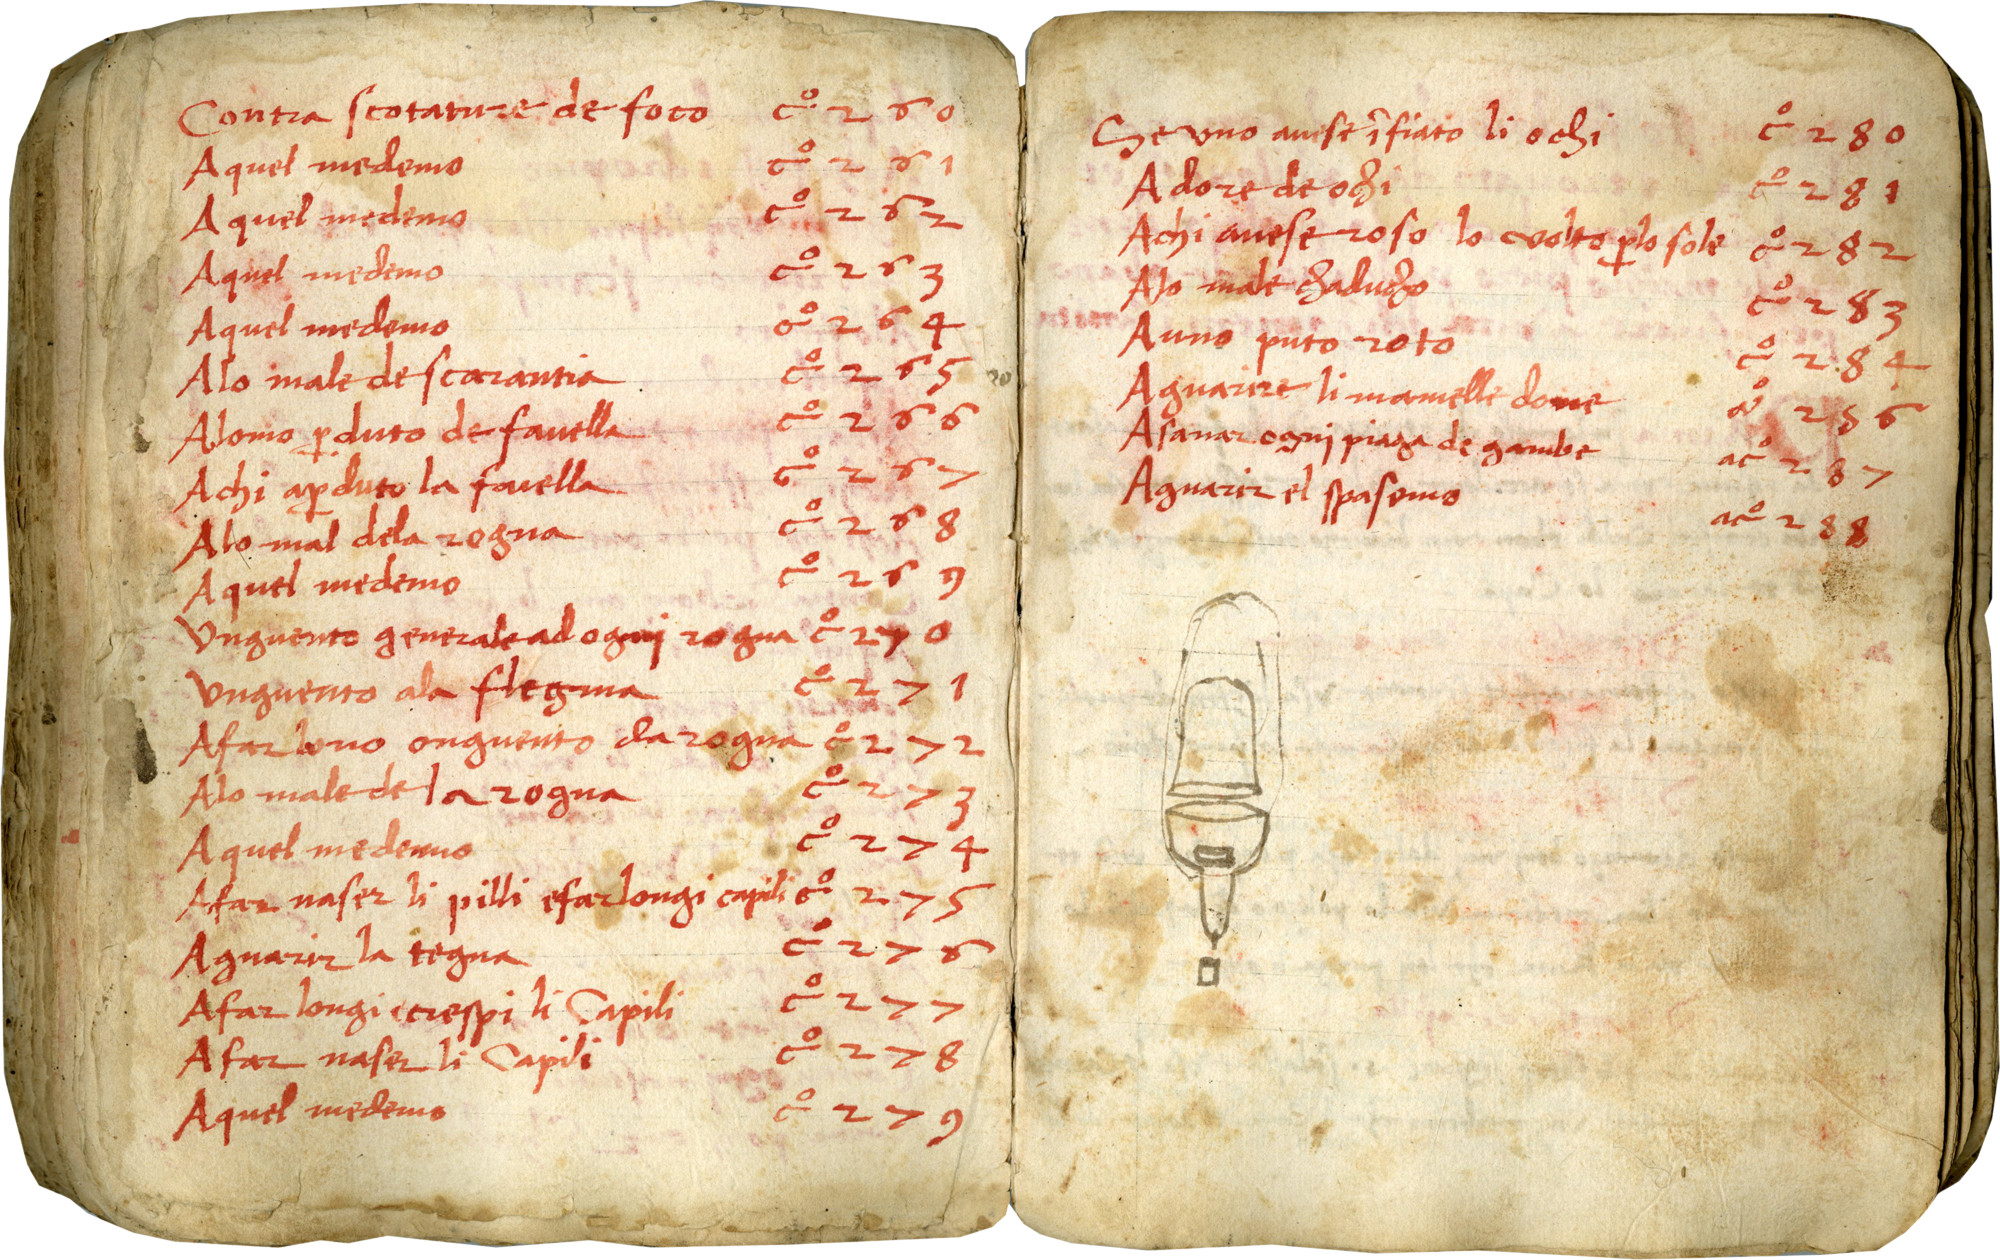 Contra scotature de foco cº 260
Aquel medemo cº 261
Aquel medemo cº 262
Aquel medemo cº 263
Aquel medemo cº 264
Alo male de scarantia cº 265
Alomo pduto de favella cº 266
Achi apduto la favella cº 267
Alo mal dela rogna cº 268
Aquel medemo cº 269
Vnguento generale ad ognj rogna cº 270
Vnguento ala flegma cº 271
Afar bono onguento da rogna cº 272
Alo male de la rogna cº 273
Aquel medemo cº 274
Afar naser li pilli efar longi capili cº 275
Aguarir la tegna cº 276
Afar longi crespi li Capili cº 277
Afar naser li Capili cº 278
Aquel medemo cº 279
Se vno auese ĩfiato li ochi cº 280
Adore de ochi cº 281
Achi auese roso lo volto p lo sole cº 282
Alo male chaducho cº 283
Auno puto roto cº 284
Aguarire li mamelle done 286
Asanar ognj piaga de gambe acº 287
Aguarir el spasemo acº 288